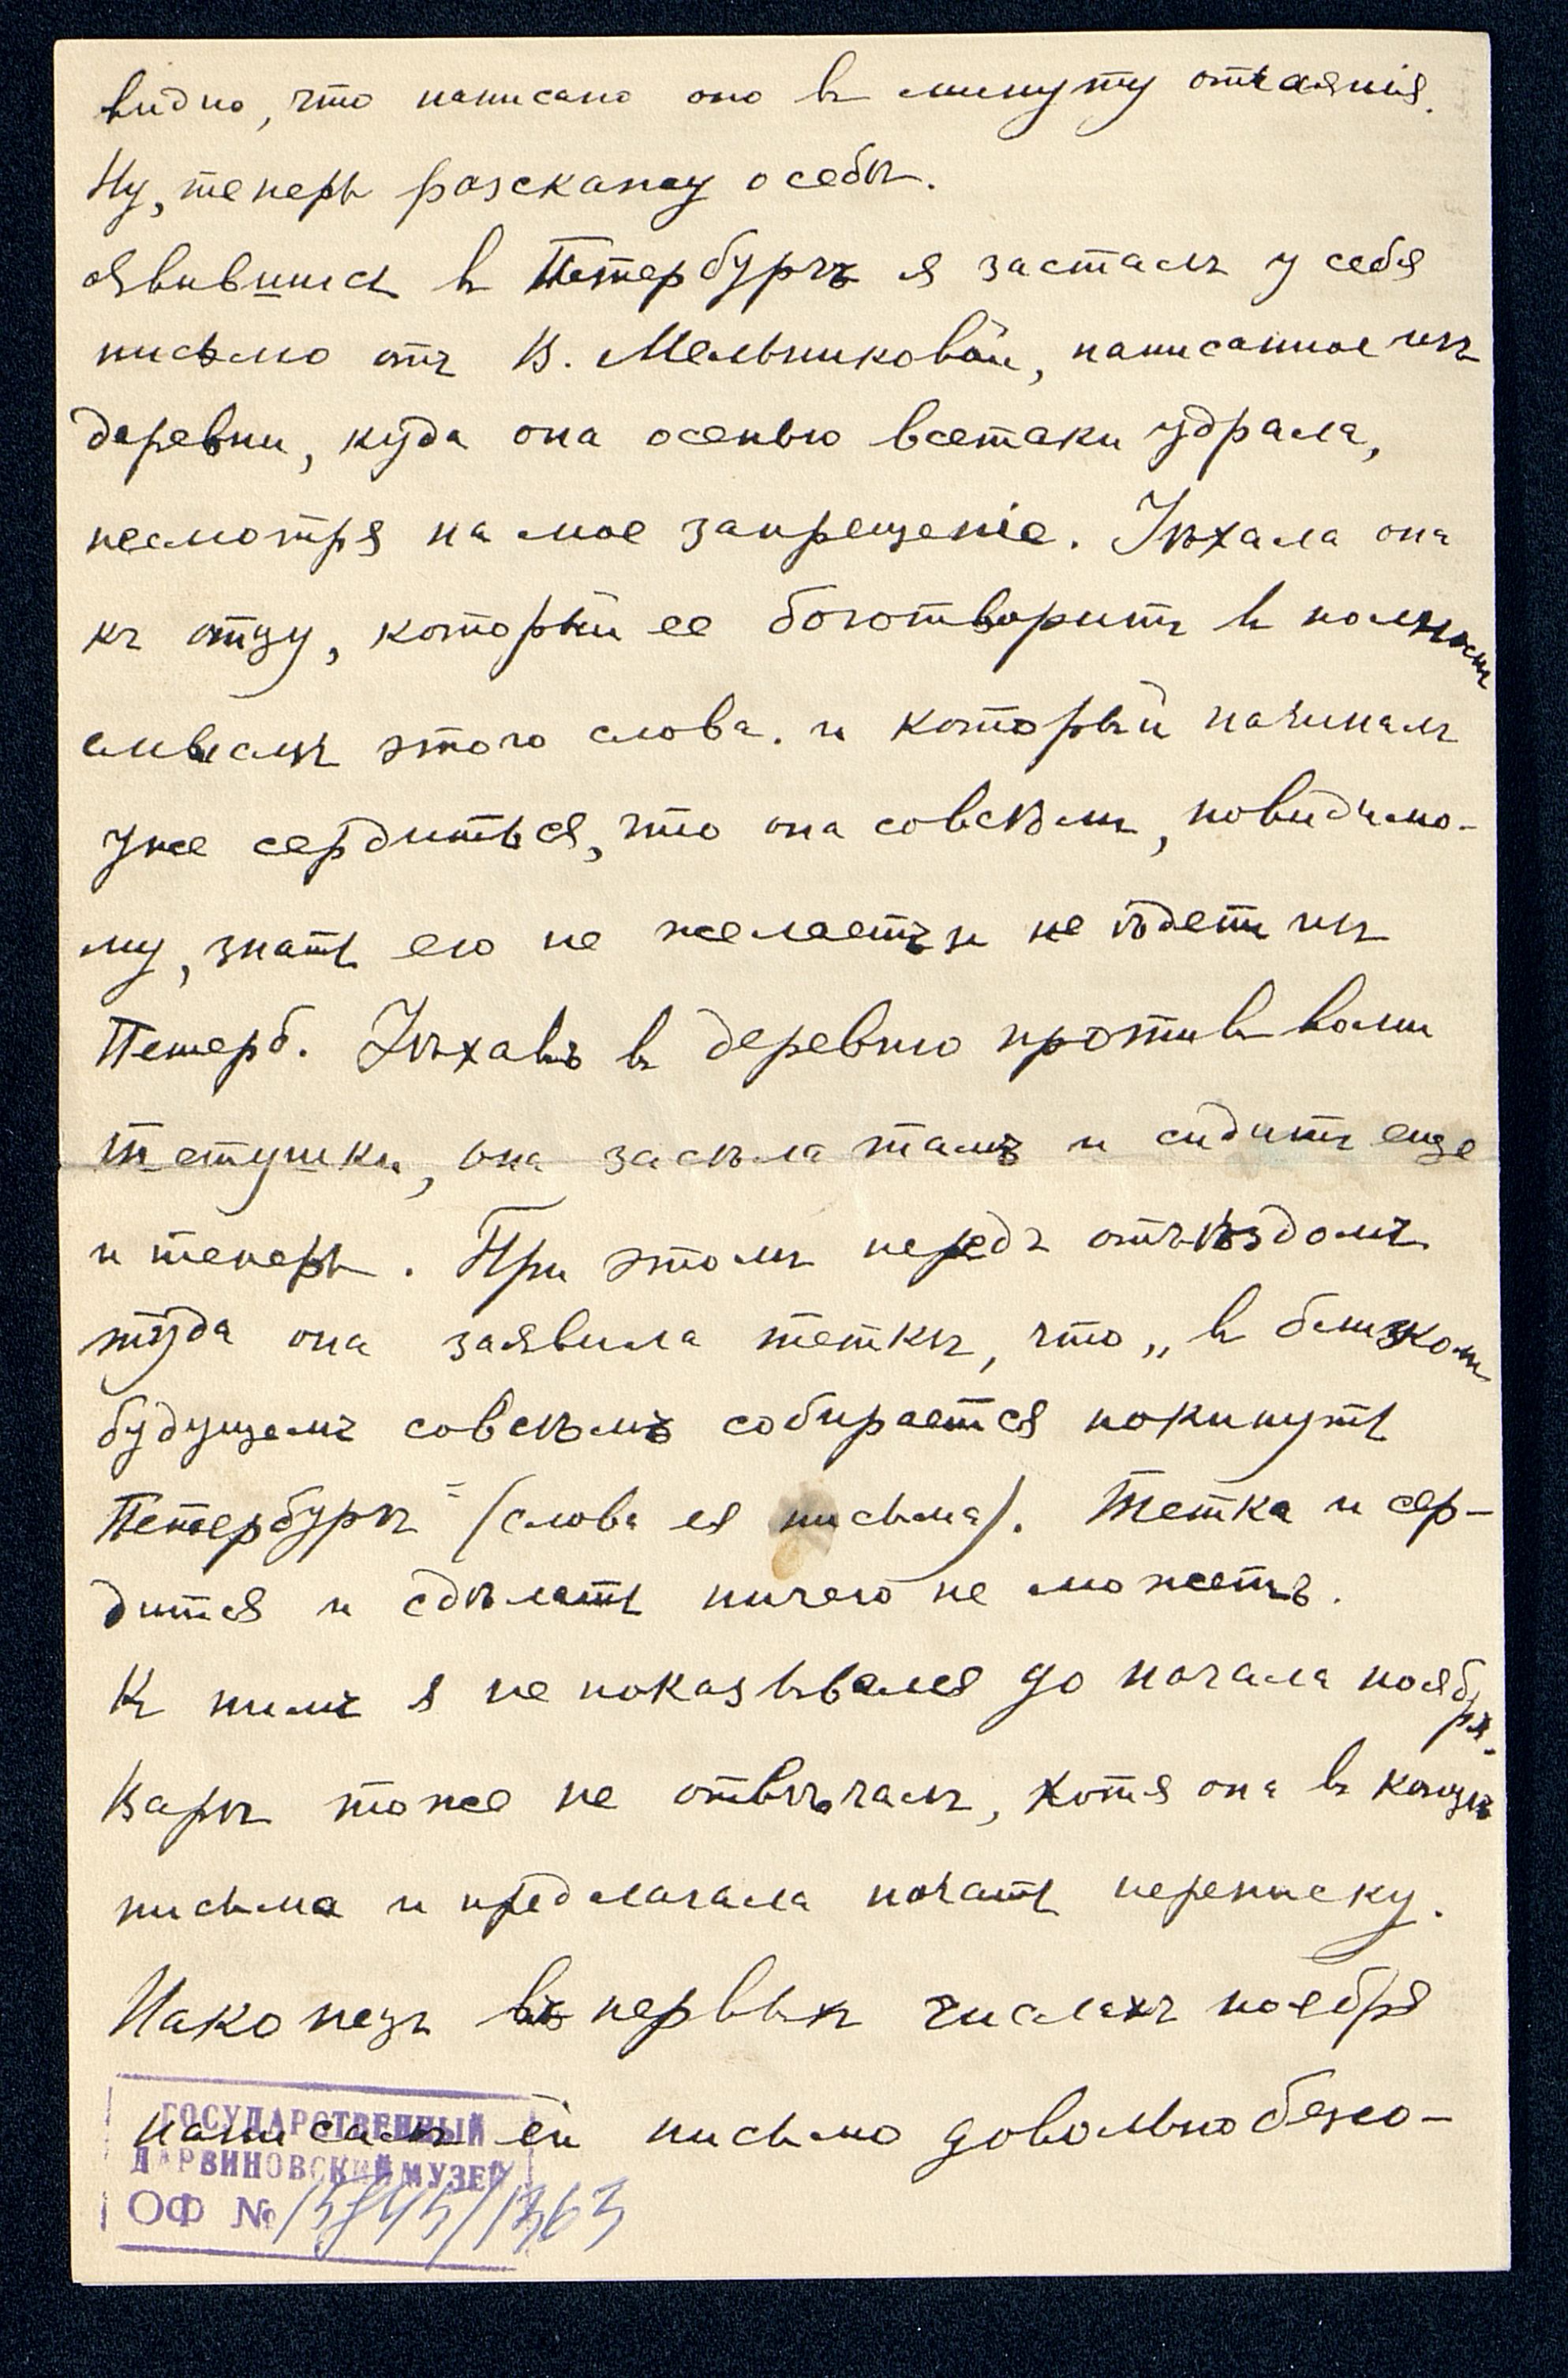 видно, что написано оно въ минуту отчаянія.
Ну, теперь разскажу о себѣ.
Явившись въ Петербургъ я засталъ у себя
письмо отъ В. Мельниковой, написанное изъ
деревни, куда она осенью всетаки удрала,
несмотря на мое запрещеніе. Уѣхала она
къ отцу, который ее боготворитъ въ полномъ
смыслѣ этого слова. и который начиналъ
уже сердиться, что она совсѣмъ, повидимо-
му, знать его не желаетъ и не ѣдетъ изъ
Петерб. Уѣхавъ въ деревню противъ воли
тетушки, она засѣла тамъ и сидитъ еще
и теперь. При этомъ передъ отъѣздомъ
туда она заявила теткѣ, что „въ близкомъ
будущемъ совсѣмъ собирается покинуть
Петербургъ" (слова ея письма). Тетка и сер-
дится и сдѣлать ничего не можетъ.
Къ нимъ я не показывался до начала ноября.
Варѣ тоже не отвѣчалъ, хотя она въ концѣ
письма и предлагала начать переписку.
Наконецъ въ первыхъ числахъ ноября
написалъ ей письмо довольно безсо-
ГОСУДАРСТВЕННЫЙ
ДАРВИНОВСКИЙ МУЗЕЙ
ОФ №